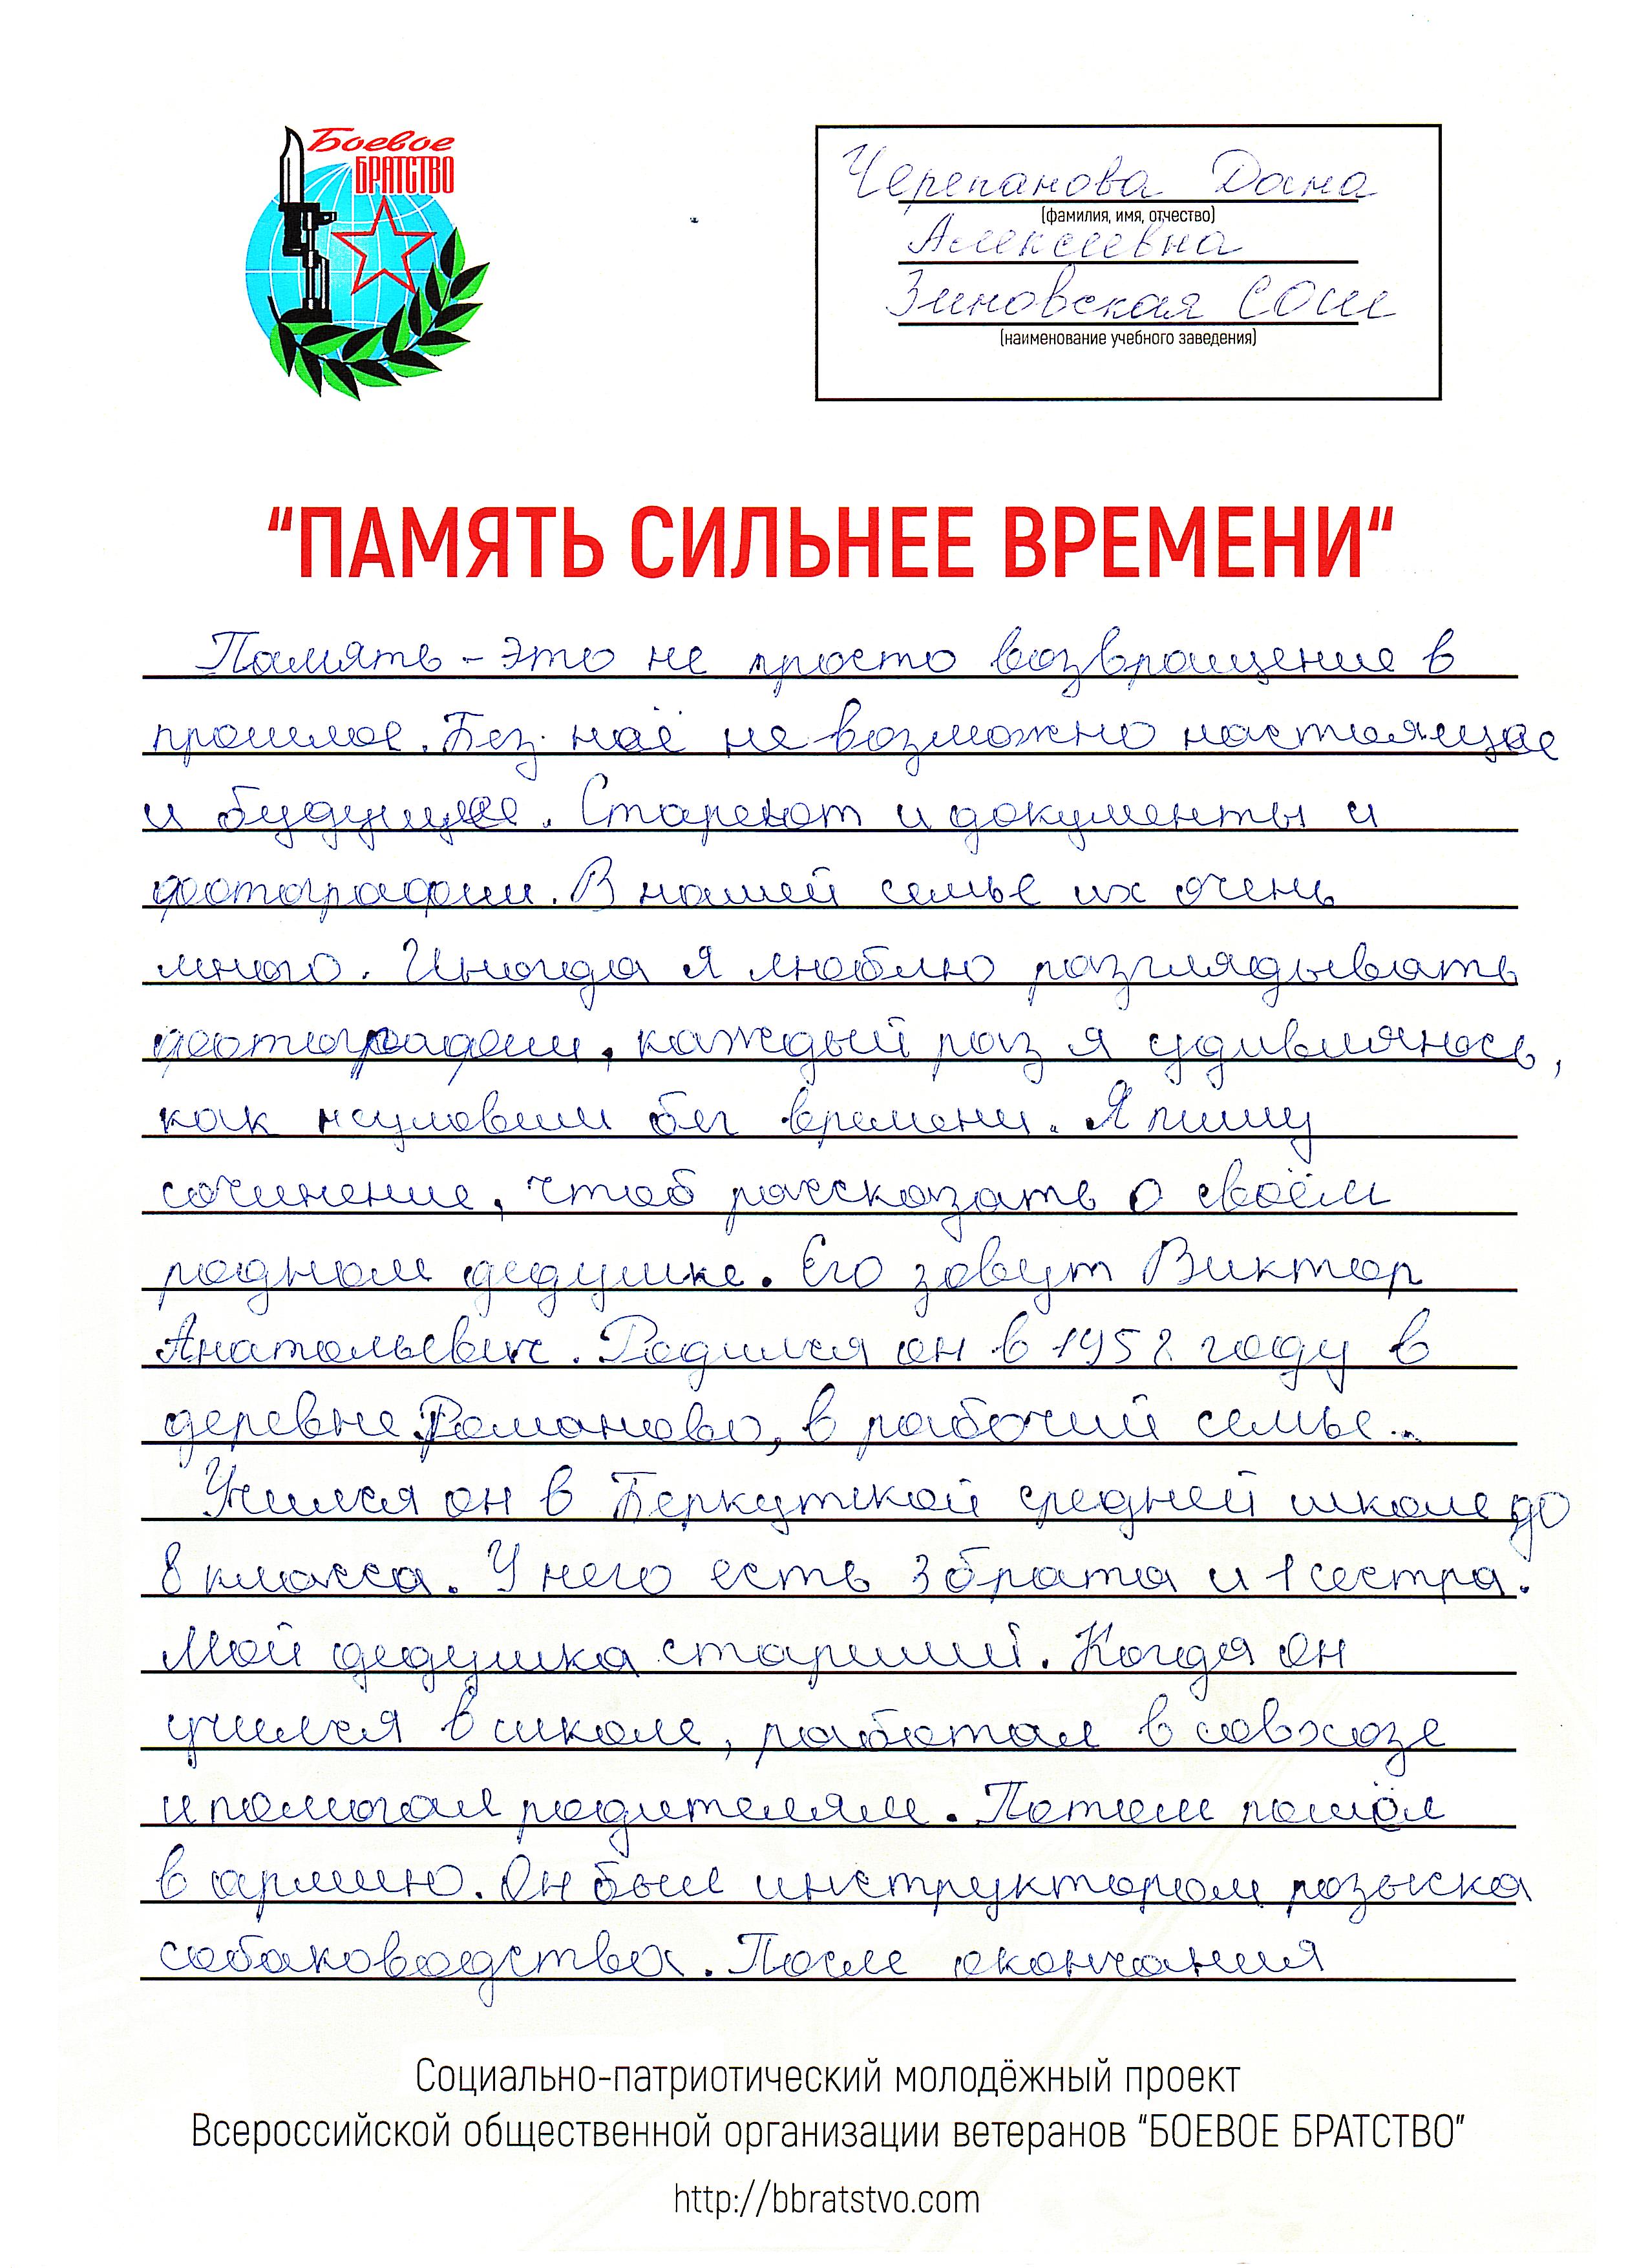 Боевое
БРАТСТВО
Черепанова Дана
(фамилия, имя, отчество)
Алексеевна
Зиновская СОШ
(наименование учебного заведения)
“ПАМЯТЬ СИЛЬНЕЕ ВРЕМЕНИ“
Память - это не просто возвращение в
прошлое. Без неё не возможно настоящее
и будущее. Стареют и документы и
фотографии. В нашей семье их очень
много. Иногда я люблю разглядывать
фотографии, каждый раз я удивляюсь,
как неумовим бег времени. Я пишу
сочинение, чтоб рассказать о своём
родном дедушке. Его зовут Виктор
Анатольевич. Родился он в 1952 году в
деревне Романово, в рабочий семье.
Учился он в Беркутской средней школе до
8 класса. У него есть 3 брата и 1 сестра.
Мой дедушка старший. Когда он
учился в школе, работал в совхозе
и помогал родителям. Потом пошёл
в армию. Он был инструктором розыска
собаководства. После окончания
Социально-патриотический молодёжный проект
Всероссийской общественной организации ветеранов “БОЕВОЕ БРАТСТВО”
http://bbratstvo.com